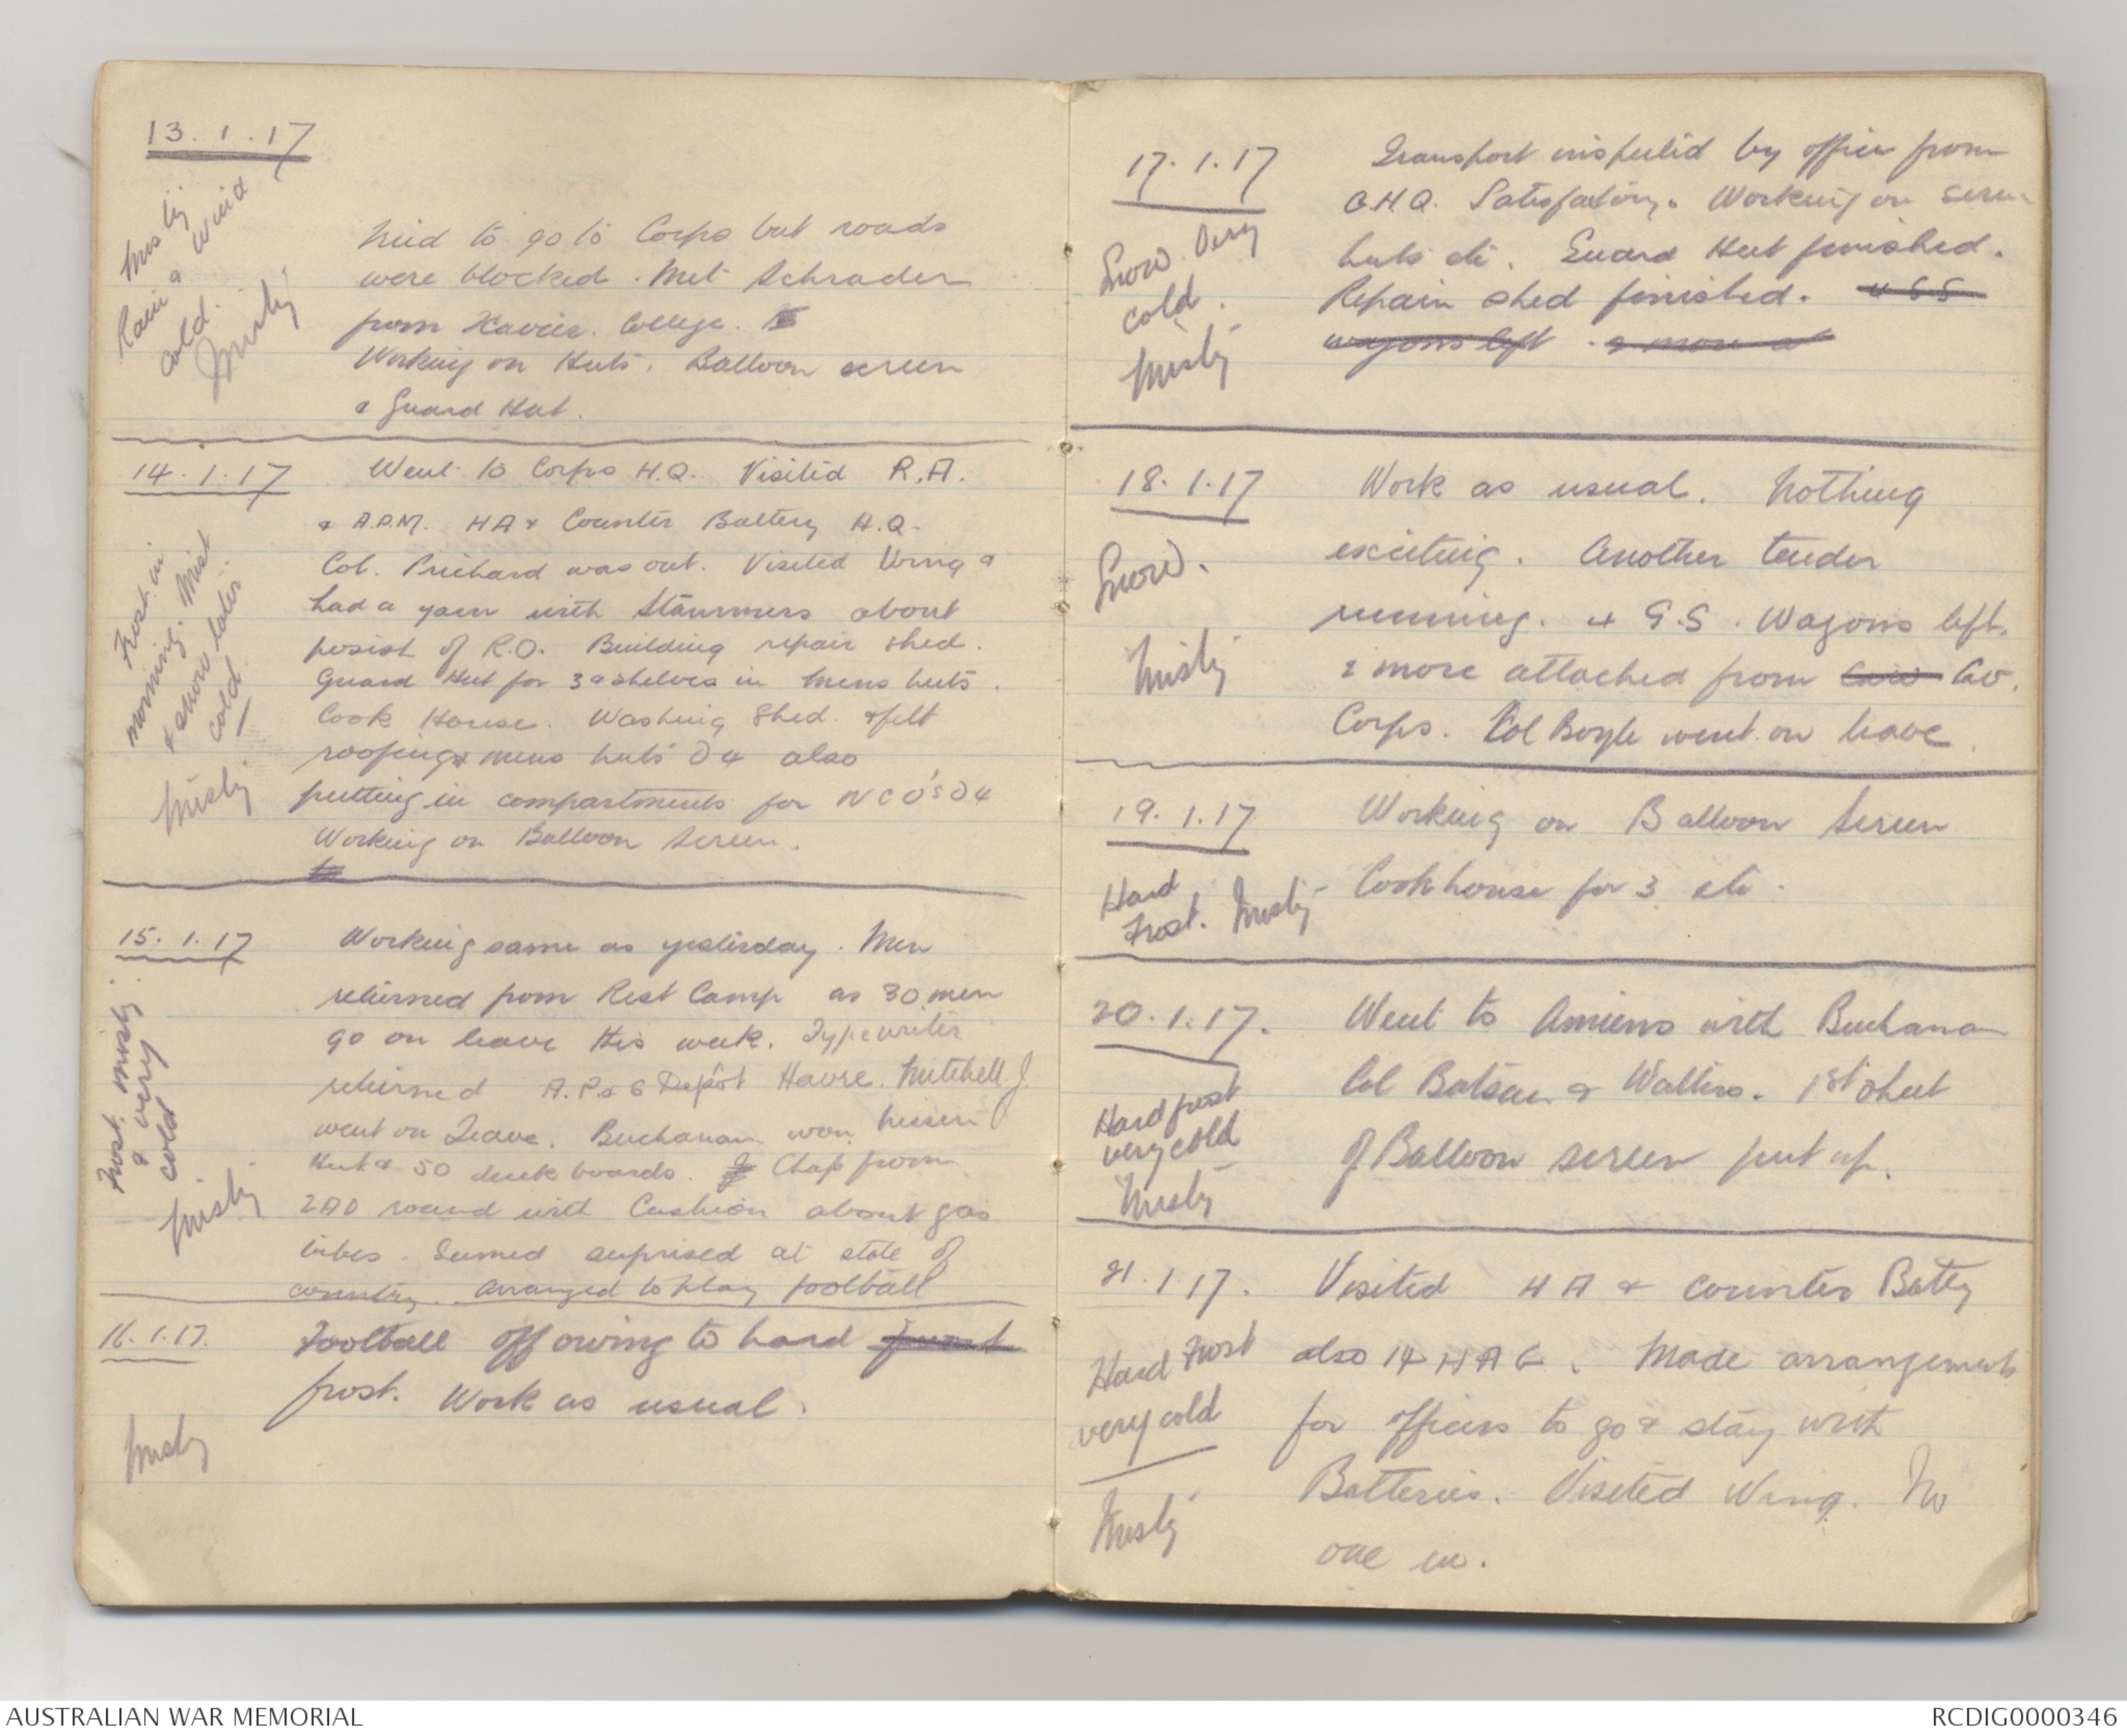 13.1.17
Misty
Rain & Wind
cold.
Misty
Tried to go to Corps but roads
were blocked. Met Schrader
from Xavier College.
Working on Huts. Balloon screen
& Guard Hut.
14.1.17
Frost in
morning. Mist
& snow later
cold
Misty
Went to Corps H.Q. Visited R.A.
& A.P.M. HA & Counter Battery H.Q.
Col. Prichard was out. Visited Wing &
had a yarn with Stammers about
posist of R.O. Building repair shed.
Guard Hut for 3 & shelves in mens huts.
Cook House. Washing Shed. & felt
roofing & mens huts D4 also
putting in compartments for NCO's D4
Working on Balloon Screen.
15.1.17
Frost. misty
& very
cold
Misty
Working same as yesterday. Men
returned from Rest Camp as 30 men
go on leave this week. Typewriter
returned A.P. & S Depôt Havre. Mitchell. J.
went on Leave. Buchanan won Nissen
Hut & 50 duck boards. Chap from
2AD round with Cushion about gas
tubes. Seemed suprised at state of
country. Arranged to play football
16.1.17.
Misty
Football off owing to hard frost
frost. Work as usual.
17.1.17
Snow. Very
cold.
Misty
Transport inspected by officer from
G.H.Q. Satisfactory. Working on screen
huts etc. Guard Hut finished.
Repair shed finished. 4 GS
wagons left. 2 more at
18.1.17
Snow.
Misty
Work as usual. Nothing
exciting. Another tender
running. 4 G.S. Wagons left.
2 more attached from Cav.
Corps. Col Boyle went on leave.
19.1.17
Hard
Frost. Misty
Working on Balloon Screen
Cookhouse for 3 etc.
20.1.17.
Hard frost
very cold
Misty
Went to Amiens with Buchanan
Col & Walters. 1st sheet
of Balloon screen put up.
21.1.17.
Hard Frost
very cold
Misty
Visited HA & Counter Battery
also 14 HAG. Made arrangements
for officers to go & stay with
Batteries. Visited Wing. No
one in.
AUSTRALIAN WAR MEMORIAL
RCDIG0000346